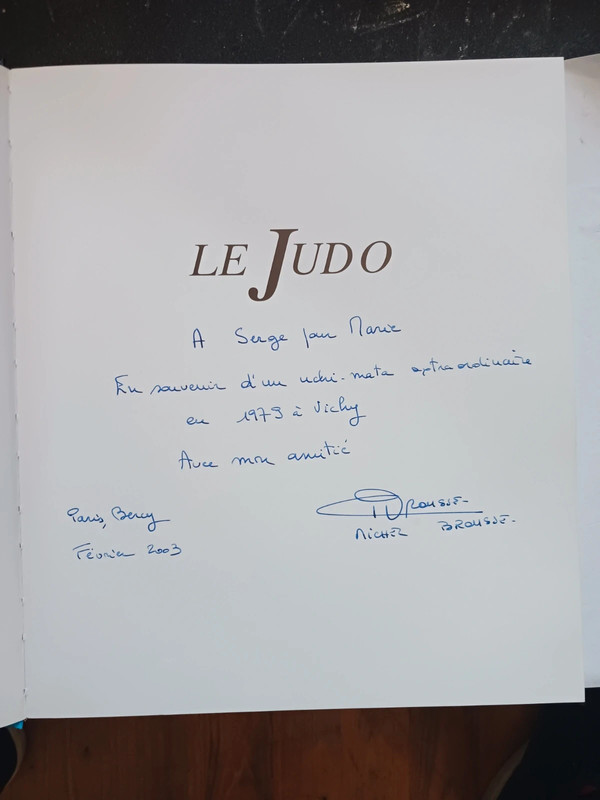 LE JUDO
A Serge Jean Marie
En souvenir d'un uchi-mata extraordinaire
en 1979 à Vichy
Avec mon amitié
Paris, Bercy
Février 2003
BROUSSE
MICHEL BROUSSE